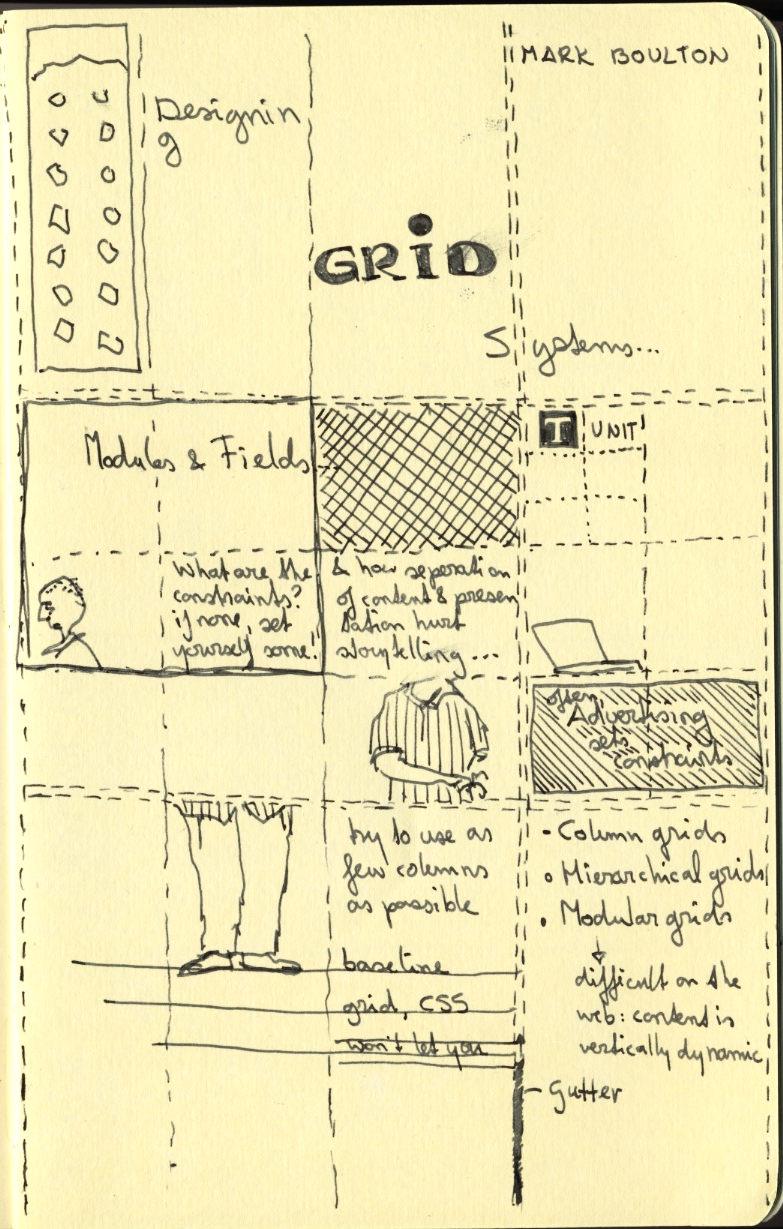 MARK BOULTON
Designin
g
GRiD
Systems...
Modules & Fields
T UNIT
What are the
constraints?
if none, set
yourself some!
& how seperation
of content & presen
tation hurt
storytelling...
often
Advertising
sets
constraints
try to use as
few columns
as possible
baseline
grid, CSS
won't let you
- Column grids
• Hierarchical grids
• Modular grids
difficult on the
web: content is
vertically dynamic
- Gutter